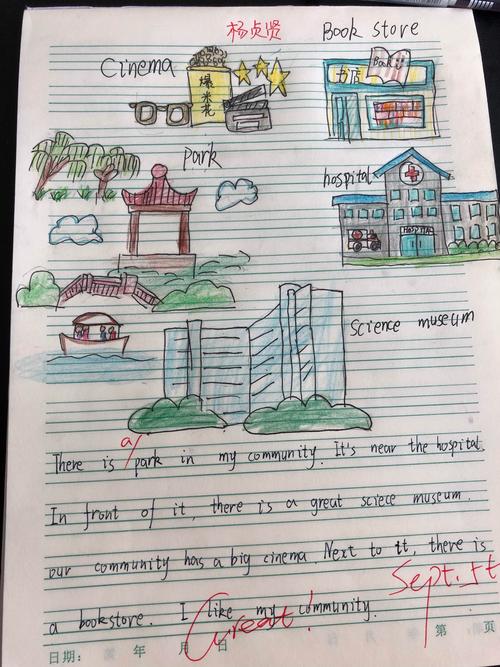 杨贞贤
Book store
Cinema
爆米花
书店
Book
park
hospital
HOSPITAL
Science museum
a
There is park in my community. It's near the hospital.
In front of it, there is a great sciece museum.
our community has a big cinema. Next to it, there is
a bookstore. I like my community.
Great!
Sept. 5t
日期: 年 月 日 页